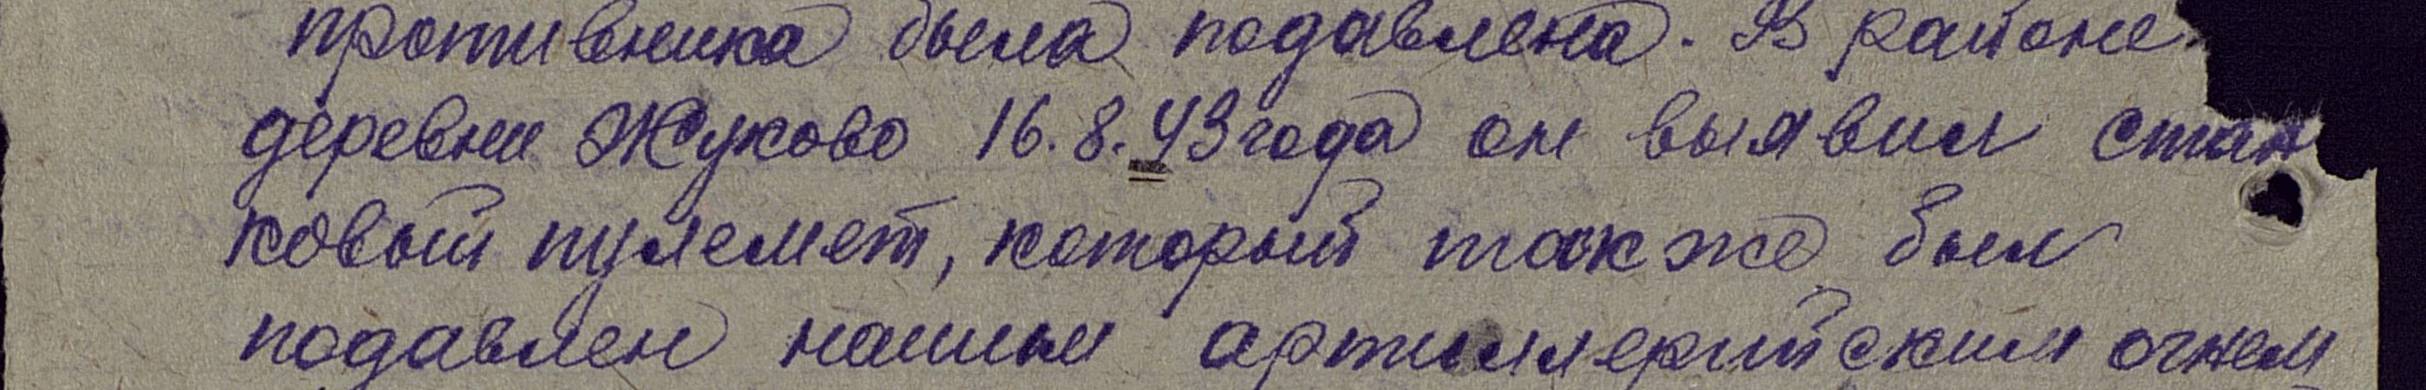 противника была подавлена. В районе
деревни Жуково 16.8.43 года он выявил стан
ковый пулемет, который также был
подавлен нашим артиллерийским огнем